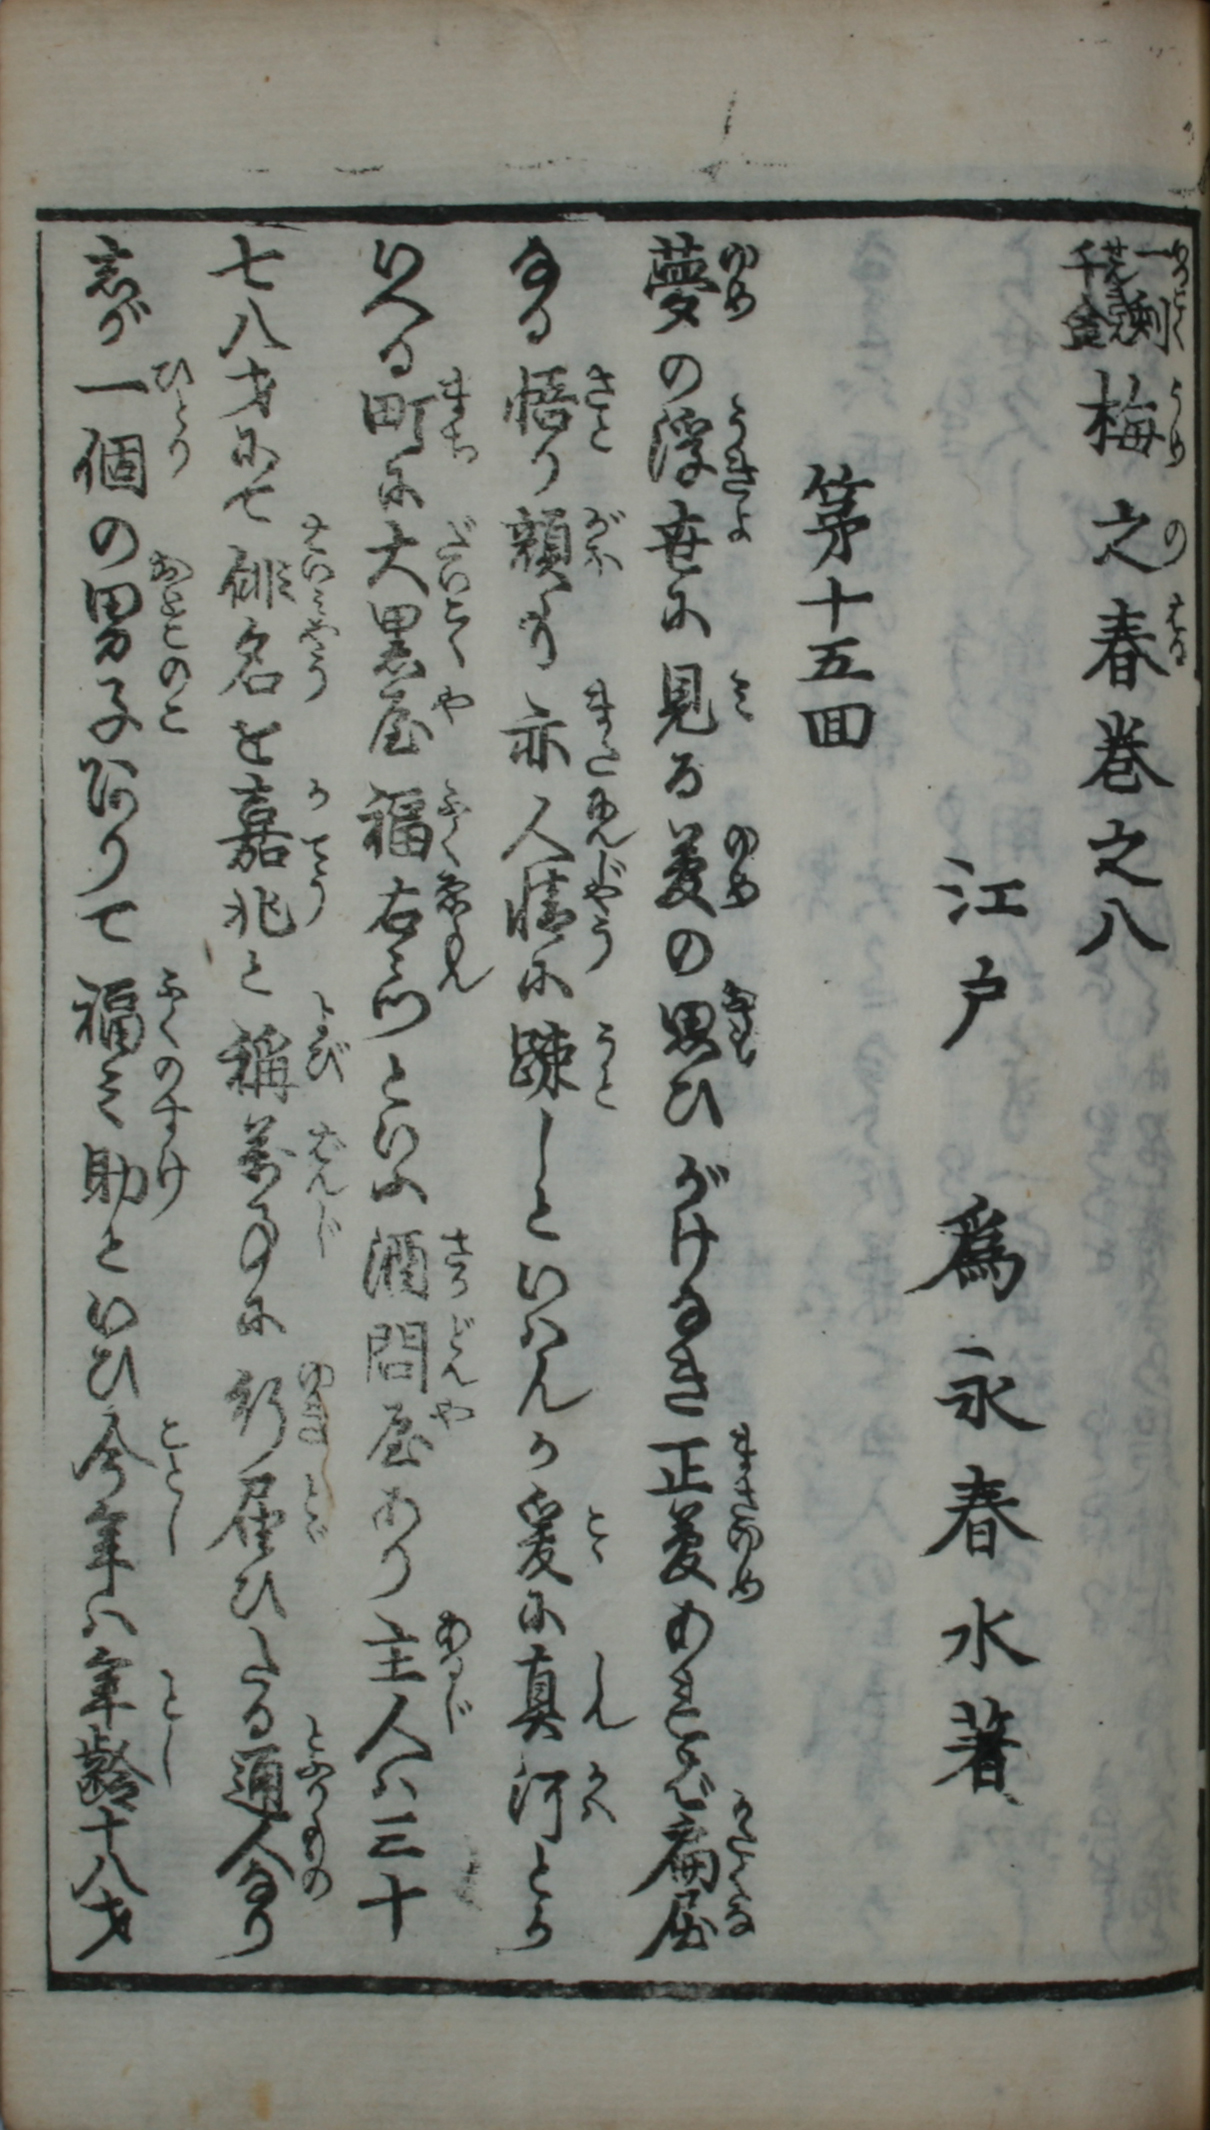 一刻千金梅之春巻之八
江戸 爲永春水著
第十五回
夢の浮世に見る夢の思ひがけなき正夢あれど扁屈
なる悟り顔より亦人情に疎しといはんか爰に真河とか
いへる町に大黒屋福右衛門といふ酒問屋あり主人ハ三十
七八才にて俳名を嘉兆と稱萬事に行届ひたる通人なり
しが一個の男子ありて福之助といひ今年ハ年齢十八才